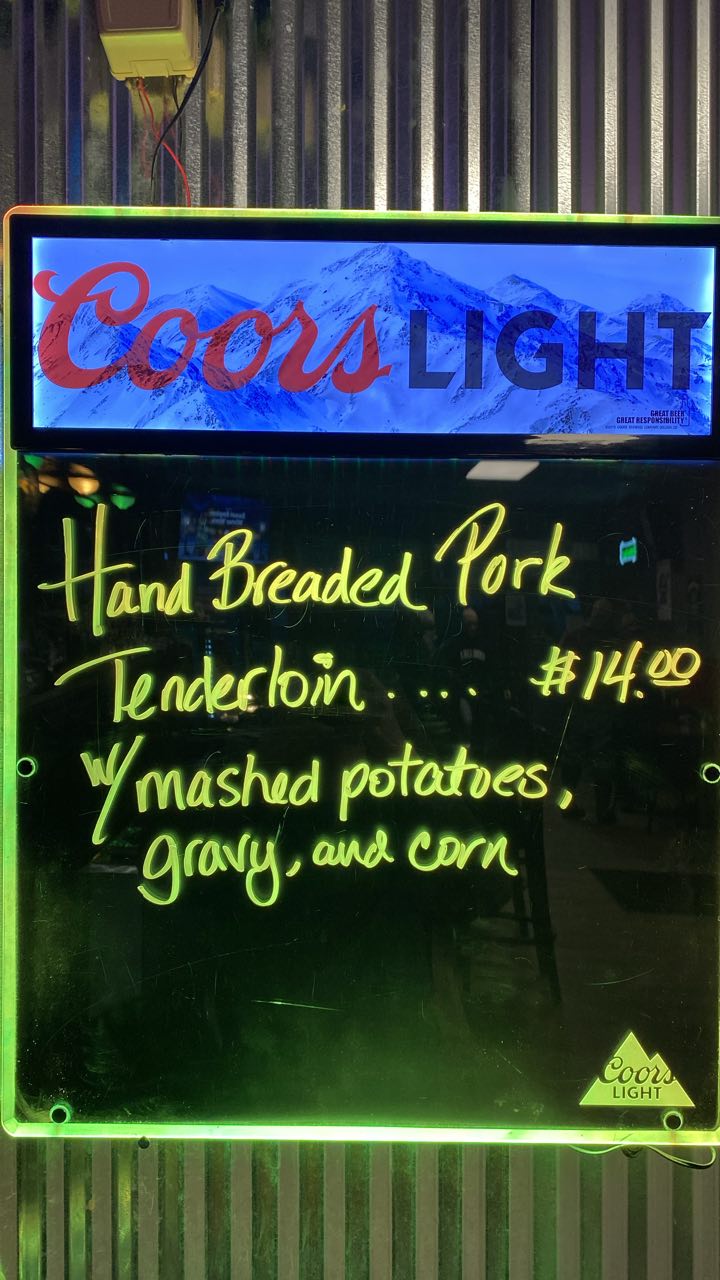 Coors LIGHT
GREAT BEER
GREAT RESPONSIBILITY
Hand Breaded Pork
Tenderloin . . . . $14.00
w/ mashed potatoes,
gravy, and corn
Coors
LIGHT